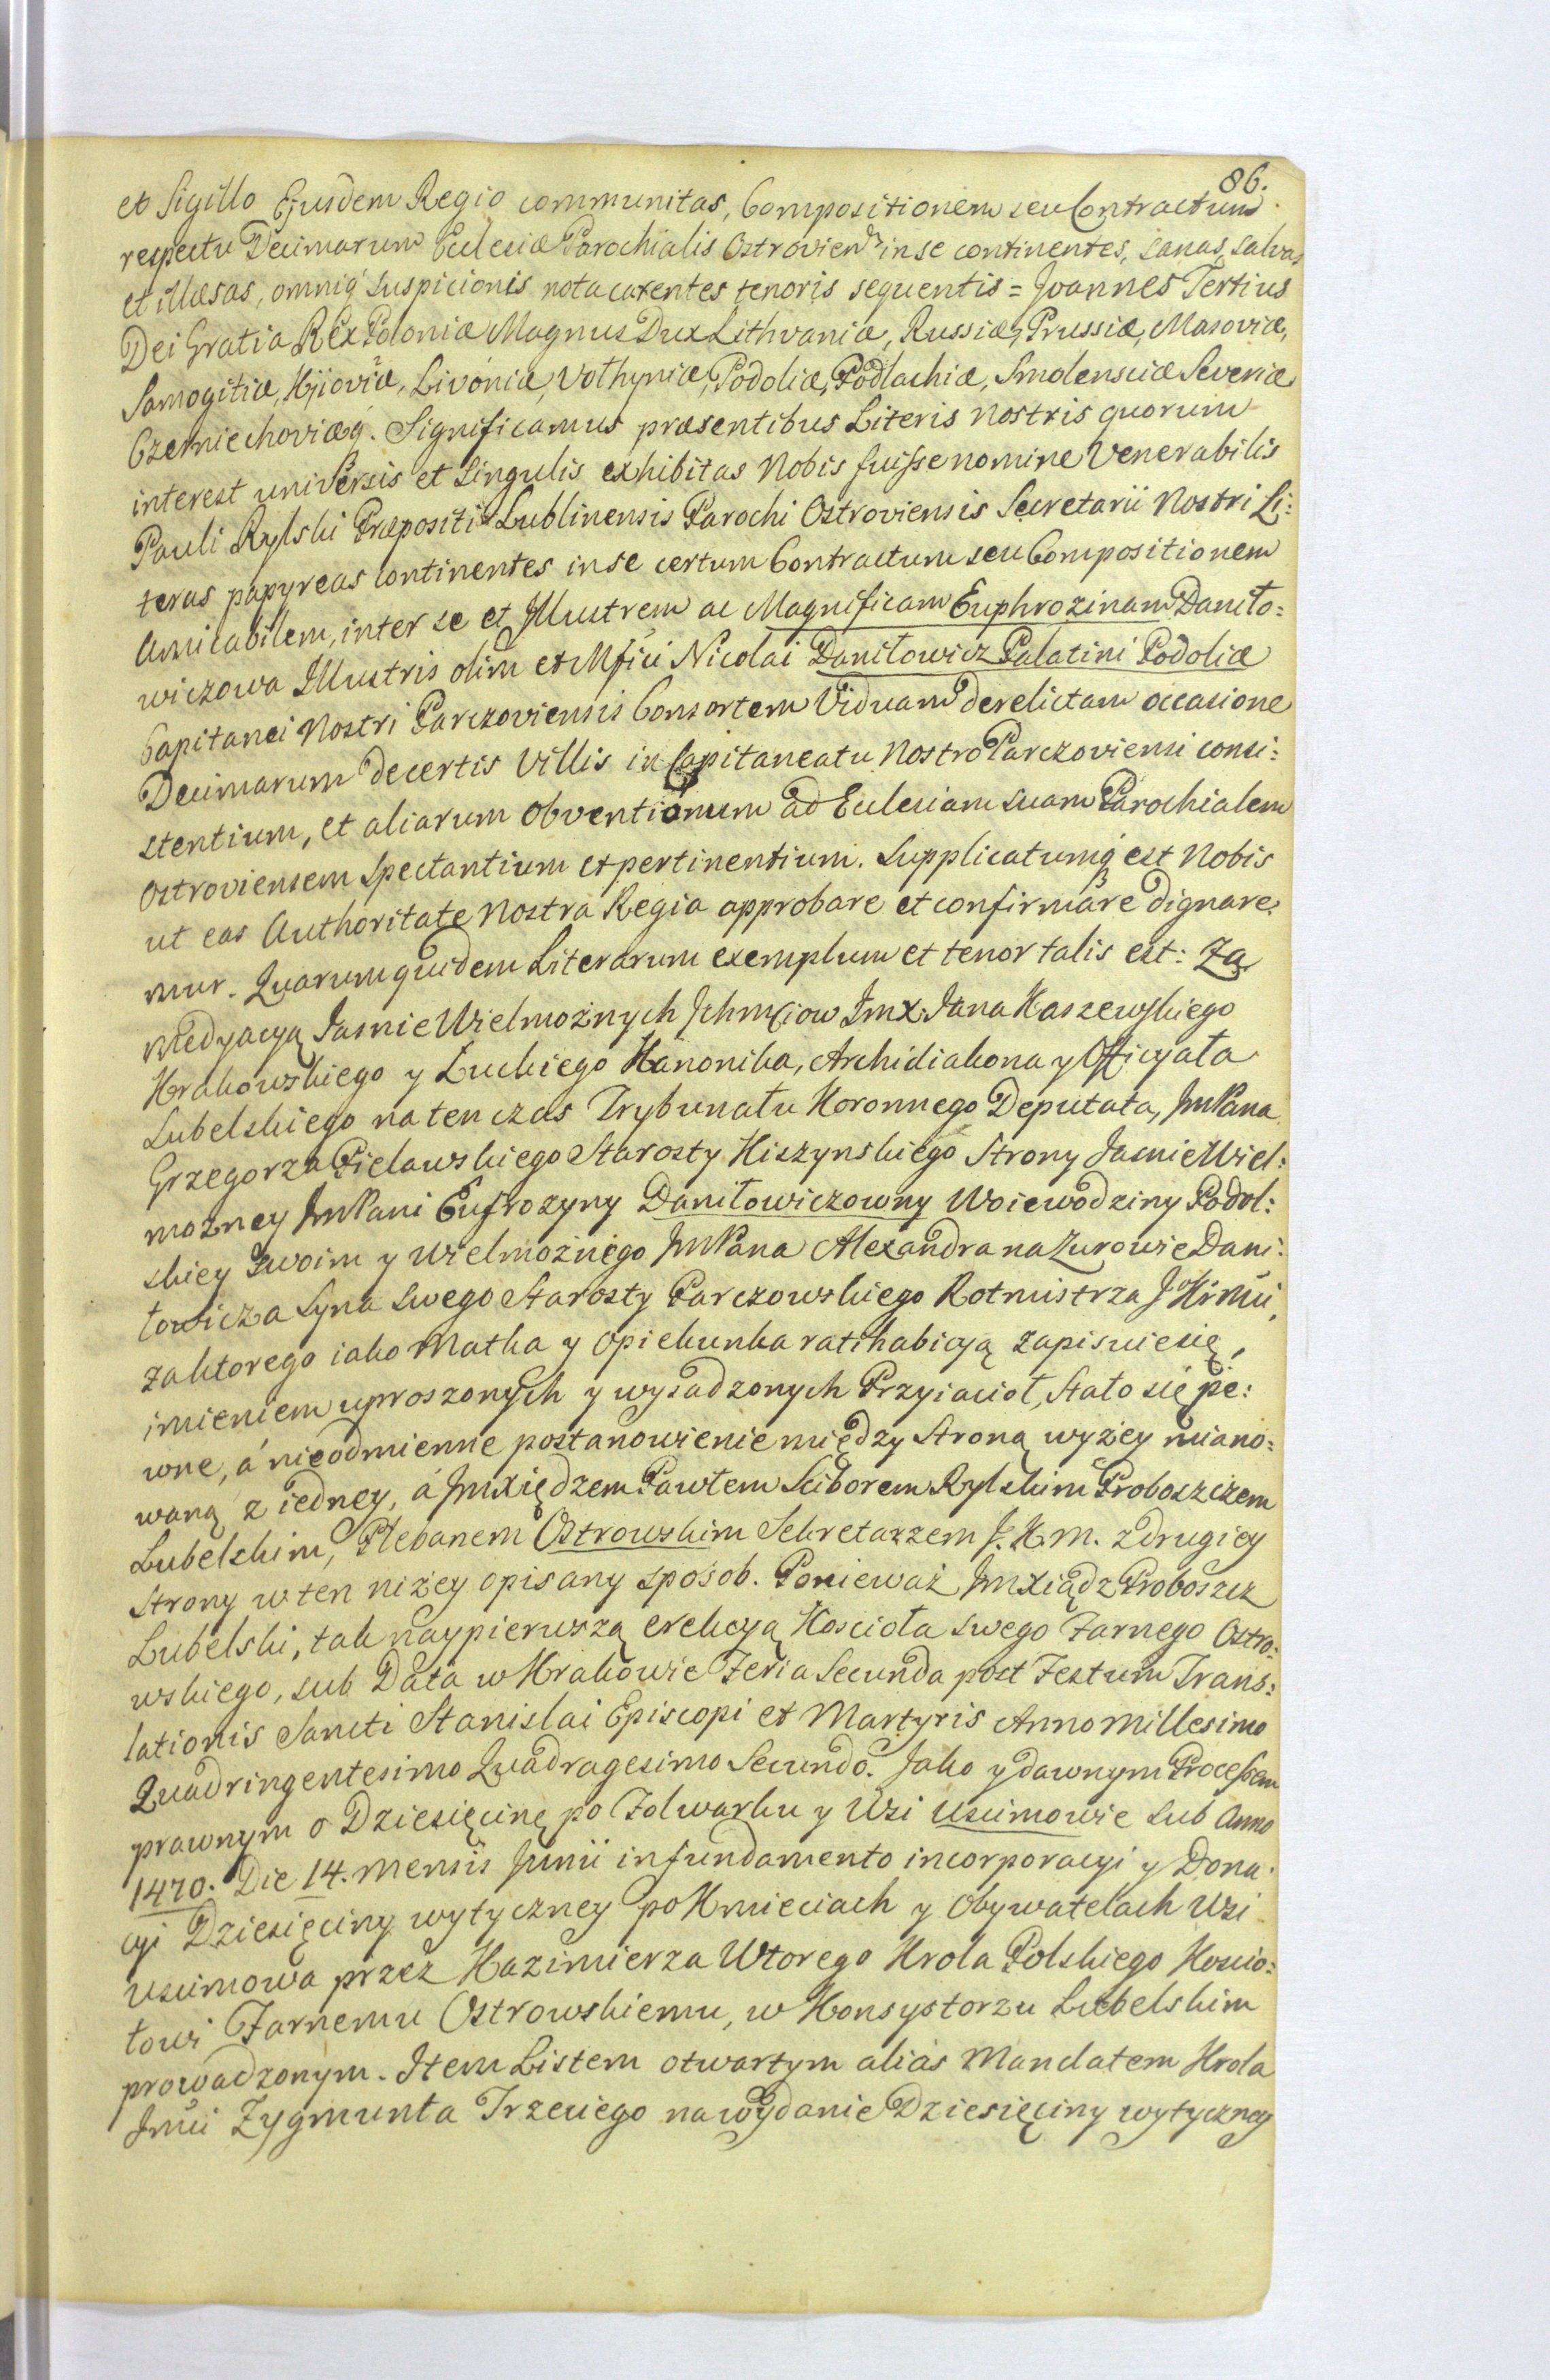 86.
et Sigillo Ejusdem Regio communitas, Compositionem seu Contractum
respectu Decimarum Ecclesiæ Parochialis Ostrovien inse continentes, sanas, salvas
et illæsas, omniq suspicionis nota carentes tenoris sequentis = Joannes Tertius
Dei Gratia Rex Poloniæ Magnus Dux Lithvaniæ, Russiæ, Prussiæ, Masoviæ,
Samogitiæ, Kijoviæ, Livoniæ, Volhyniæ, Podoliæ, Podlachiæ, Smolensciæ Severiæ
Czerniechoviæq. Significamus præsentibus Literis nostris quorum
interest universis et singulis exhibitas Nobis fuisse nomine Venerabilis
Pauli Rylski Præpositi Lublinensis Parochi Ostroviensis Secretarii Nostri Li:
teras papyreas continentes inse certum Contractum seu Compositionem
Amicabilem, inter se et Illustrem ac Magnificam Euphrozinam Daniło:
wiczowa Illustris olim et Mfici Nicolai Daniłowicz Palatini Podoliæ
Capitanei Nostri Parczoviensis Consortem Viduam derelictam occasione
Decimarum decertis Villis in Capitaneatu Nostro Parczoviensi consi:
stentium, et aliarum obventionum ad Ecclesiam suam Parochialem
Ostroviensem spectantium et pertinentium. Supplicatumq est Nobis
ut eas Authoritate Nostra Regia approbare et confirmare dignare:
mur. Quarum quidem Literarum exemplum et tenor talis est: Za
medyacyą Jasnie Wielmożnych Jchmciow Jmx. Jana Kaszewskiego
Krakowskiego y Łuckiego Kanonika, Archidiakona y Officyała
Lubelskiego na ten czas Trybunału Koronnego Deputata, JmPana
Grzegorza Pielawskiego Starosty Kiszynskiego Strony Jasnie Wiel:
możney JmPani Eufrozyny Daniłowiczowny Woiewodziny Podol:
skiey swoim y Wielmożnego JmPana Alexandra na Zurowie Dani:
łowicza Syna swego Starosty Parczowskiego Rotmistrza JKrMci,
za ktorego iako Matka y opiekunka ratihabicyą zapisuiesię,
imieniem uproszonych y wysadzonych Przyiacioł, Stało się pe:
wne, á nieodmienne postanowienie między Stroną wyżey miano:
waną z iedney, á Jmxiędzem Pawłem Sciborem Rylskim Proboszczem
Lubelskim, Plebanem Ostrowskim Sekretarzem J. K. m. z drugiey
Strony w ten niżey opisany sposob. Ponieważ Jmxiądz Proboszcz
Lubelski, tak naypierwszą erekcyą Koscioła swego Farnego Ostro:
wskiego, sub Data w Krakowie Feria Secunda post Festum Trans:
lationis Sancti Stanislai Episcopi et Martyris Anno Millesimo
Quadringentesimo Quadragesimo Secundo. Jako y dawnym Processem
prawnym o Dziesięcinę po Folwarku y Wsi Uscimowie sub Anno
1470. Die 14. Mensis Junii in fundamento incorporacyi y Dona:
cyi Dziesięciny wytyczney po Kmieciach y Obywatelach Wsi
Uscimowa przez Kazimierza Wtorego Krola Polskiego Koscio:
łowi Farnemu Ostrowskiemu, w Konsystorzu Lubelskim
prowadzonym. Item Listem otwartym alias Mandatem Krola
Jmci Zygmunta Trzeciego na wydanie Dziesięciny wytyczney